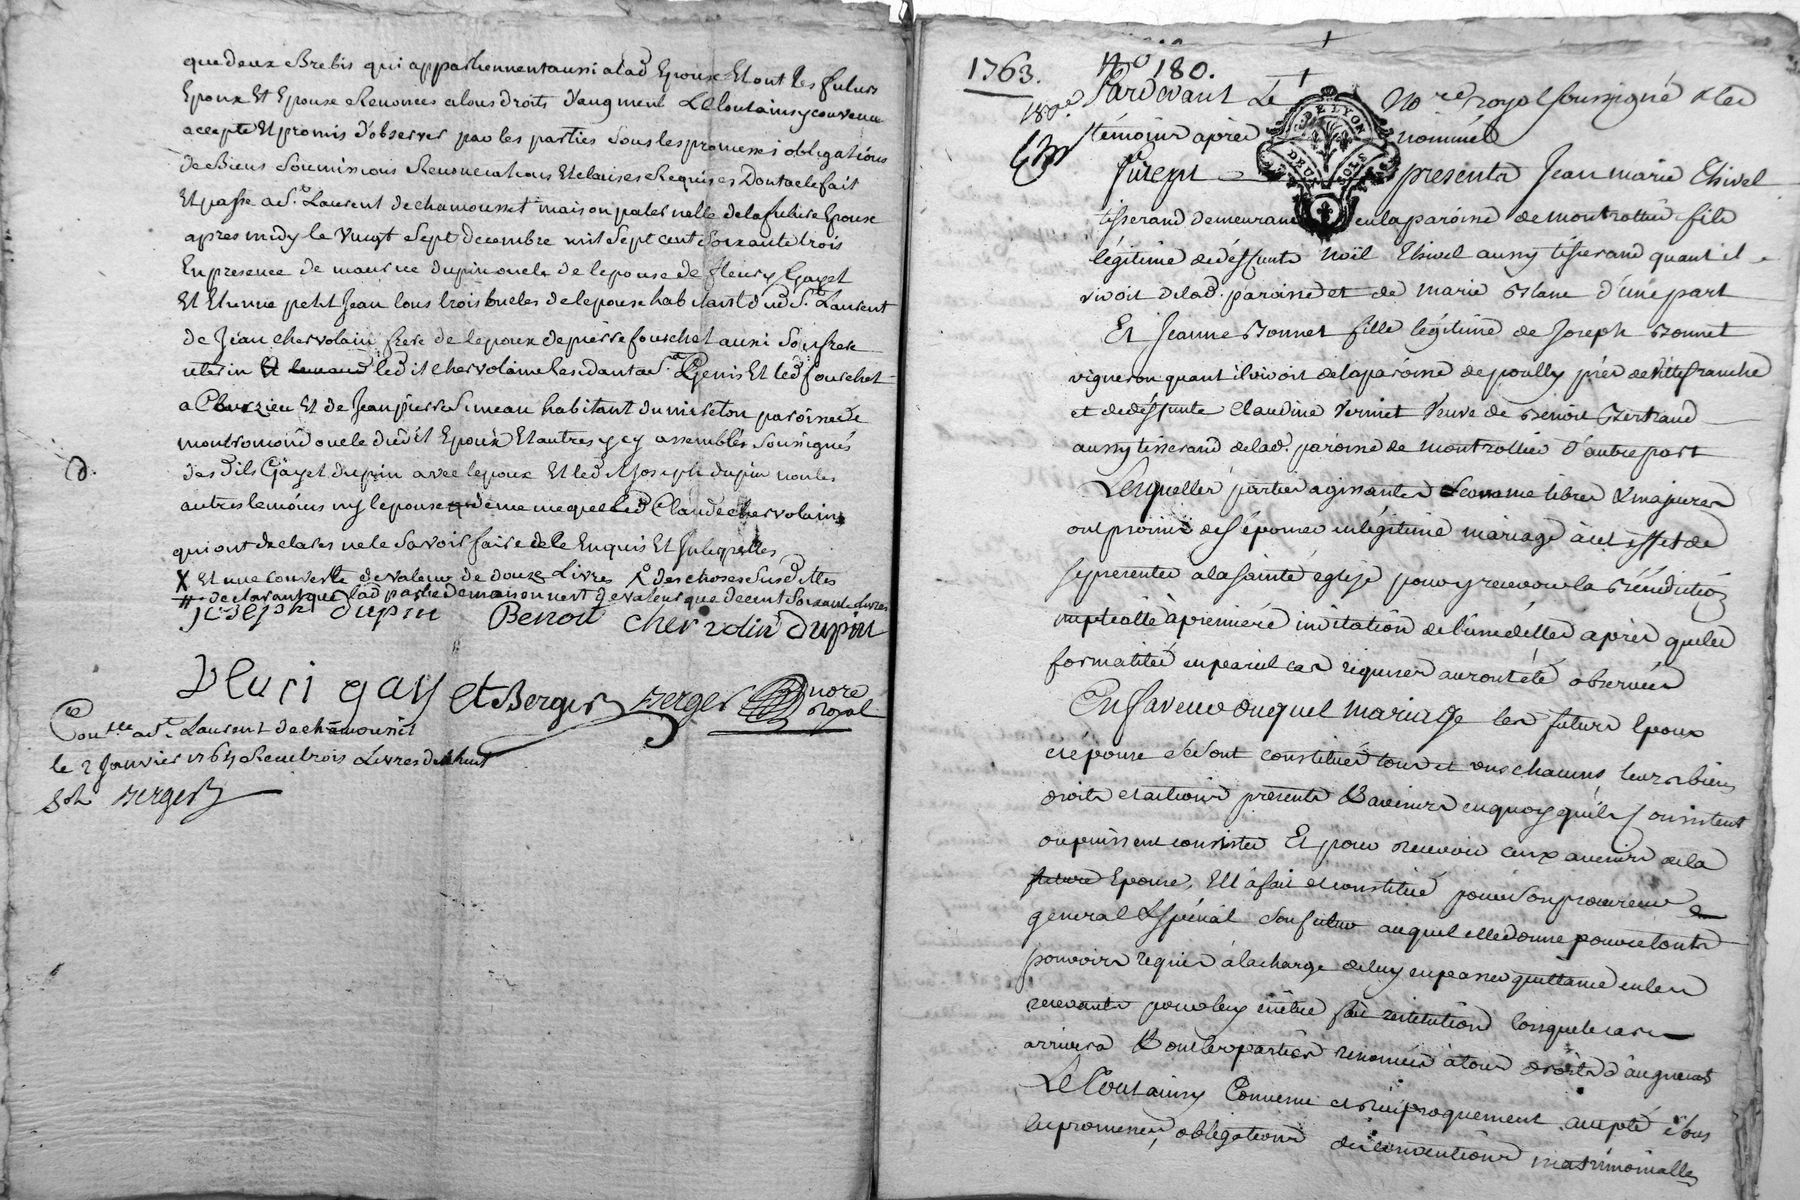 que deux Brebis qui appartiennent aussi a lad Epouse Et ont les futurs
Epoux Et Epouse Renoncés a tous droits d'augment Le tout ainsy convenu
accepté Et promis d'observer par les parties sous les promesses obligations
de Biens Soumissions Renonciations Et clauses Requises Dont acte fait
Et passé a St Laurent de chamousset maison paternelle de la future Epouse
apres midy le Vingt Sept decembre mil Sept cent Soixante trois
En presence de maurice dupin oncle de lepouse de fleury Gayet
Et Etienne petit Jean tous trois oncles de lepouse habitants dud St Laurent
de Jean chervolain frere de lepoux de pierre fouschet aussi Son frere
uterin ledit chervolain Residant a St Genis Et led fouschet
a Et de Jean pierre Simean habitant du paroisse de
montromond oncle dudit Epoux Et autres y assemblés Soussignés
desdits Gayet dupin avec lepoux Et led Joseph dupin non les
autres temoins ny lepouse meme led Claude chervolain
qui ont declarés ne le Savoir faire de ce Enquis Et Interpellés
X Et une couverte de valeur de douze Livres des choses Susdittes
# declarant que lad partie de maison n'est de valeur que de cent Soixante Livres
Joseph dupin Benoit chervolin dupin
fleuri gayet Berger Berger nore
royal
Conlle a St Laurent de chamousset
le 2 Janvier 1764 Recu trois Livres dix huit
Sols Berger
1763. No 180.
180e Pardevant Le Nore royal soussigné & les
témoins après nommés
GEN. DE LYON
DEUX SOLS
Furent présents Jean marie Thivel
tisserand demeurant en la paroisse de montrottier fils
légitime de déffunts Noël Thivel aussy tisserand quant il
vivoit de lad. paroisse et de marie Blanc d'une part
Et Jeanne Bonnet fille légitime de Joseph Bonnet
vigneron quant il vivoit de la paroisse de pouilly près de villefranche
et de déffunte Claudine Vermet Veuve de Benoit Bertrand
aussy tisserand de lad. paroisse de montrottier d'autre part
Lesquelles parties agissantes comme libres & majeures
ont promis de s'épouser en légitime mariage à cet effet de
se presenter a la sainte église pour y recevoir la Bénédiction
nuptialle à première invitation de l'une delles après que les
formalités en pareil cas requises auront été observées
En faveur duquel mariage les futurs Epoux
et épouse se sont constitués tous et uns chacuns leurs biens
droits et actions présents & avenirs en quoy qu'ils consistent
ou puissent consister Et pour recevoir ceux avenirs de la
future Epouse, Elle a fait et constitué pour son procureur
general & spécial son futur auquel elle donne pouvoir touts
pouvoirs requis à la charge de luy en passer quittance en les
recevants pour luy en être fait restitution lorsque le cas
arrivera & ont les parties renoncés à tous droits d'augment
Le tout ainsy convenu et réciproquement accepté sous
les promesses, obligations de conventions matrimonialles